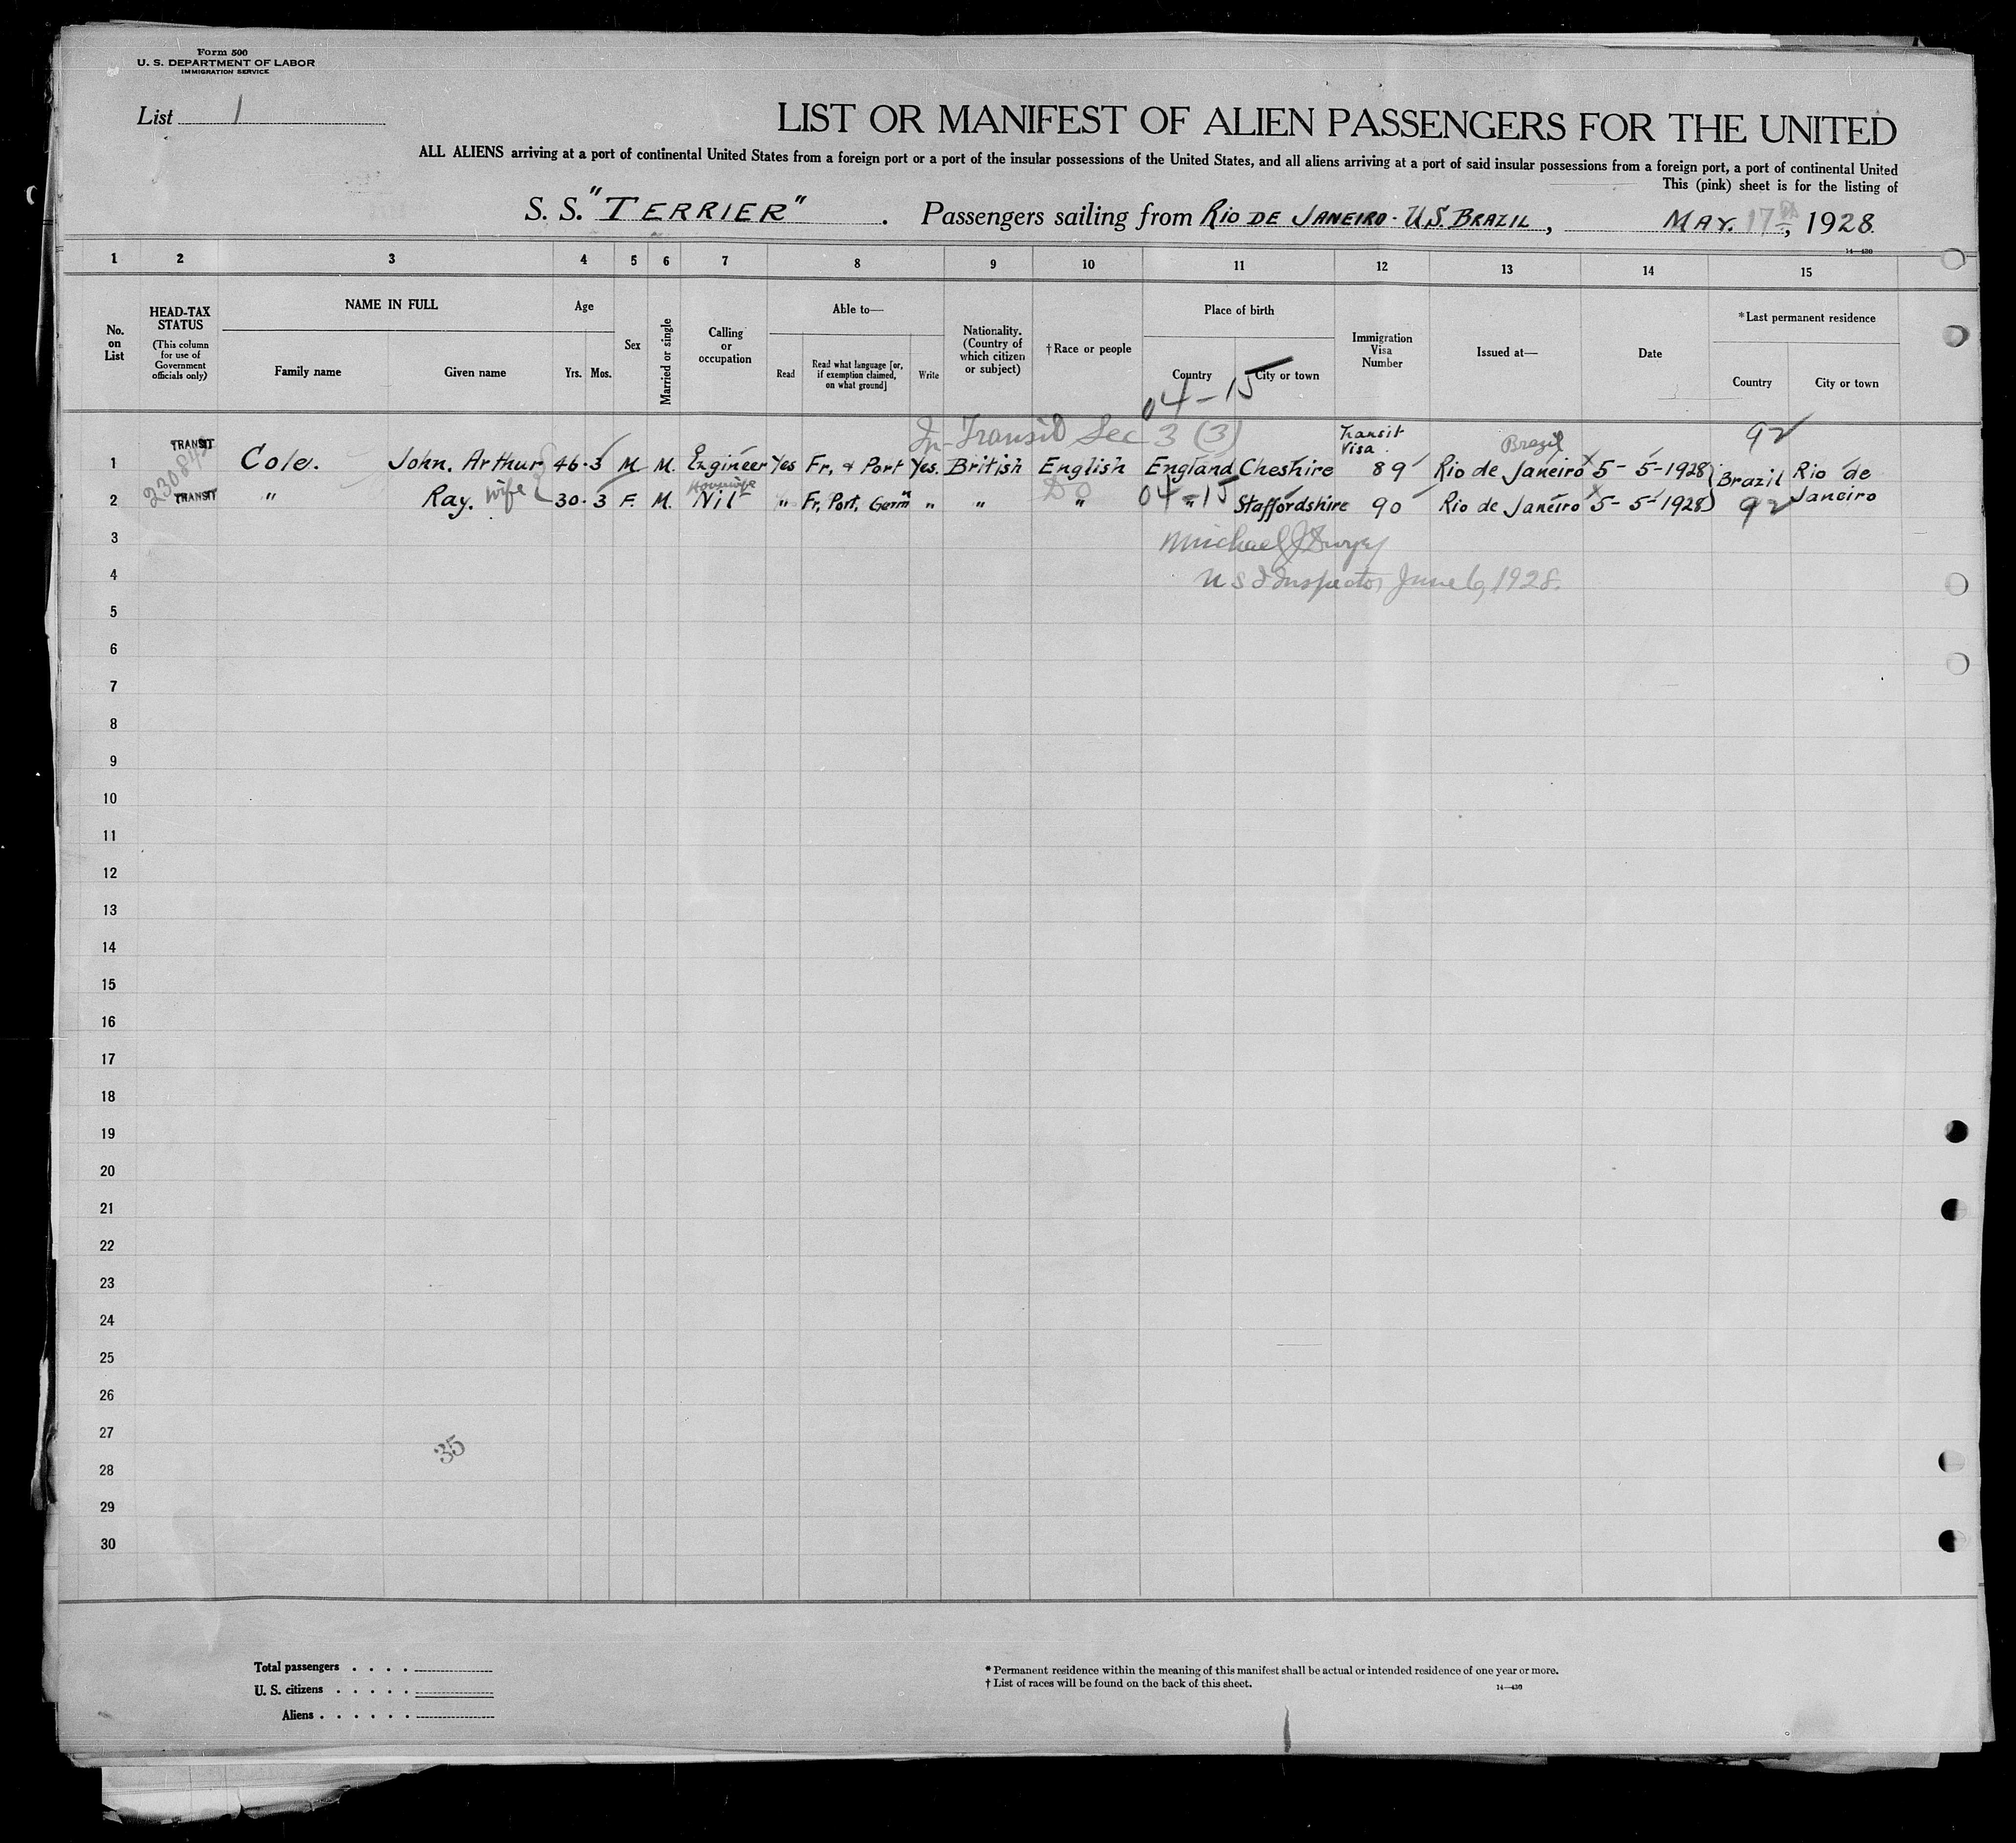 Form 500
U. S. DEPARTMENT OF LABOR
IMMIGRATION SERVICE
List 1
LIST OR MANIFEST OF ALIEN PASSENGERS FOR THE UNITED
ALL ALIENS arriving at a port of continental United States from a foreign port or a port of the insular possessions of the United States, and all aliens arriving at a port of said insular possessions from a foreign port, a port of continental United
This (pink) sheet is for the listing of
S. S. "TERRIER" . Passengers sailing from RIO DE JANEIRO - U.S. BRAZIL, MAY. 17th, 1928.
14—430
1 2 3 4 5 6 7 8 9 10 11 12 13 14 15
No. on List
HEAD-TAX STATUS
(This column for use of Government officials only)
NAME IN FULL
Family name Given name
Age
Yrs. Mos.
Sex
Married or single
Calling or occupation
Able to—
Read
Read what language [or, if exemption claimed, on what ground]
Write
Nationality. (Country of which citizen or subject)
†Race or people
Place of birth
Country City or town
Immigration Visa Number
Issued at—
Date
*Last permanent residence
Country City or town
04-15
In-Transit Sec 3 (3) Transit Visa. Brazil 92
1 TRANSIT Cole. John. Arthur 46-3 M M. Engineer Yes Fr, & Port Yes. British English England Cheshire 89 Rio de Janeiro 5-5-1928 Brazil Rio de Janeiro
Housewife Do 04-15
2 TRANSIT " Ray. wife 30-3 F. M. Nil " Fr, Port, Germn " " " " Staffordshire 90 Rio de Janeiro 5-5-1928 92
3 Michael J Dwyer
4 U S I Inspector June 6, 1928.
5
6
7
8
9
10
11
12
13
14
15
16
17
18
19
20
21
22
23
24
25
26
27
35
28
29
30
Total passengers . . . .
U. S. citizens . . . . .
Aliens . . . . . .
* Permanent residence within the meaning of this manifest shall be actual or intended residence of one year or more.
† List of races will be found on the back of this sheet.
14—430
1